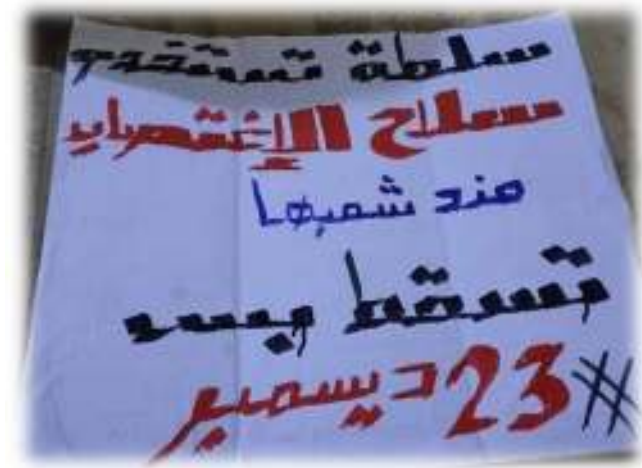 سلطة تستخدم
سلاح الإغتصاب
ضد شعبها
تسقط بس
#23ديسمبر